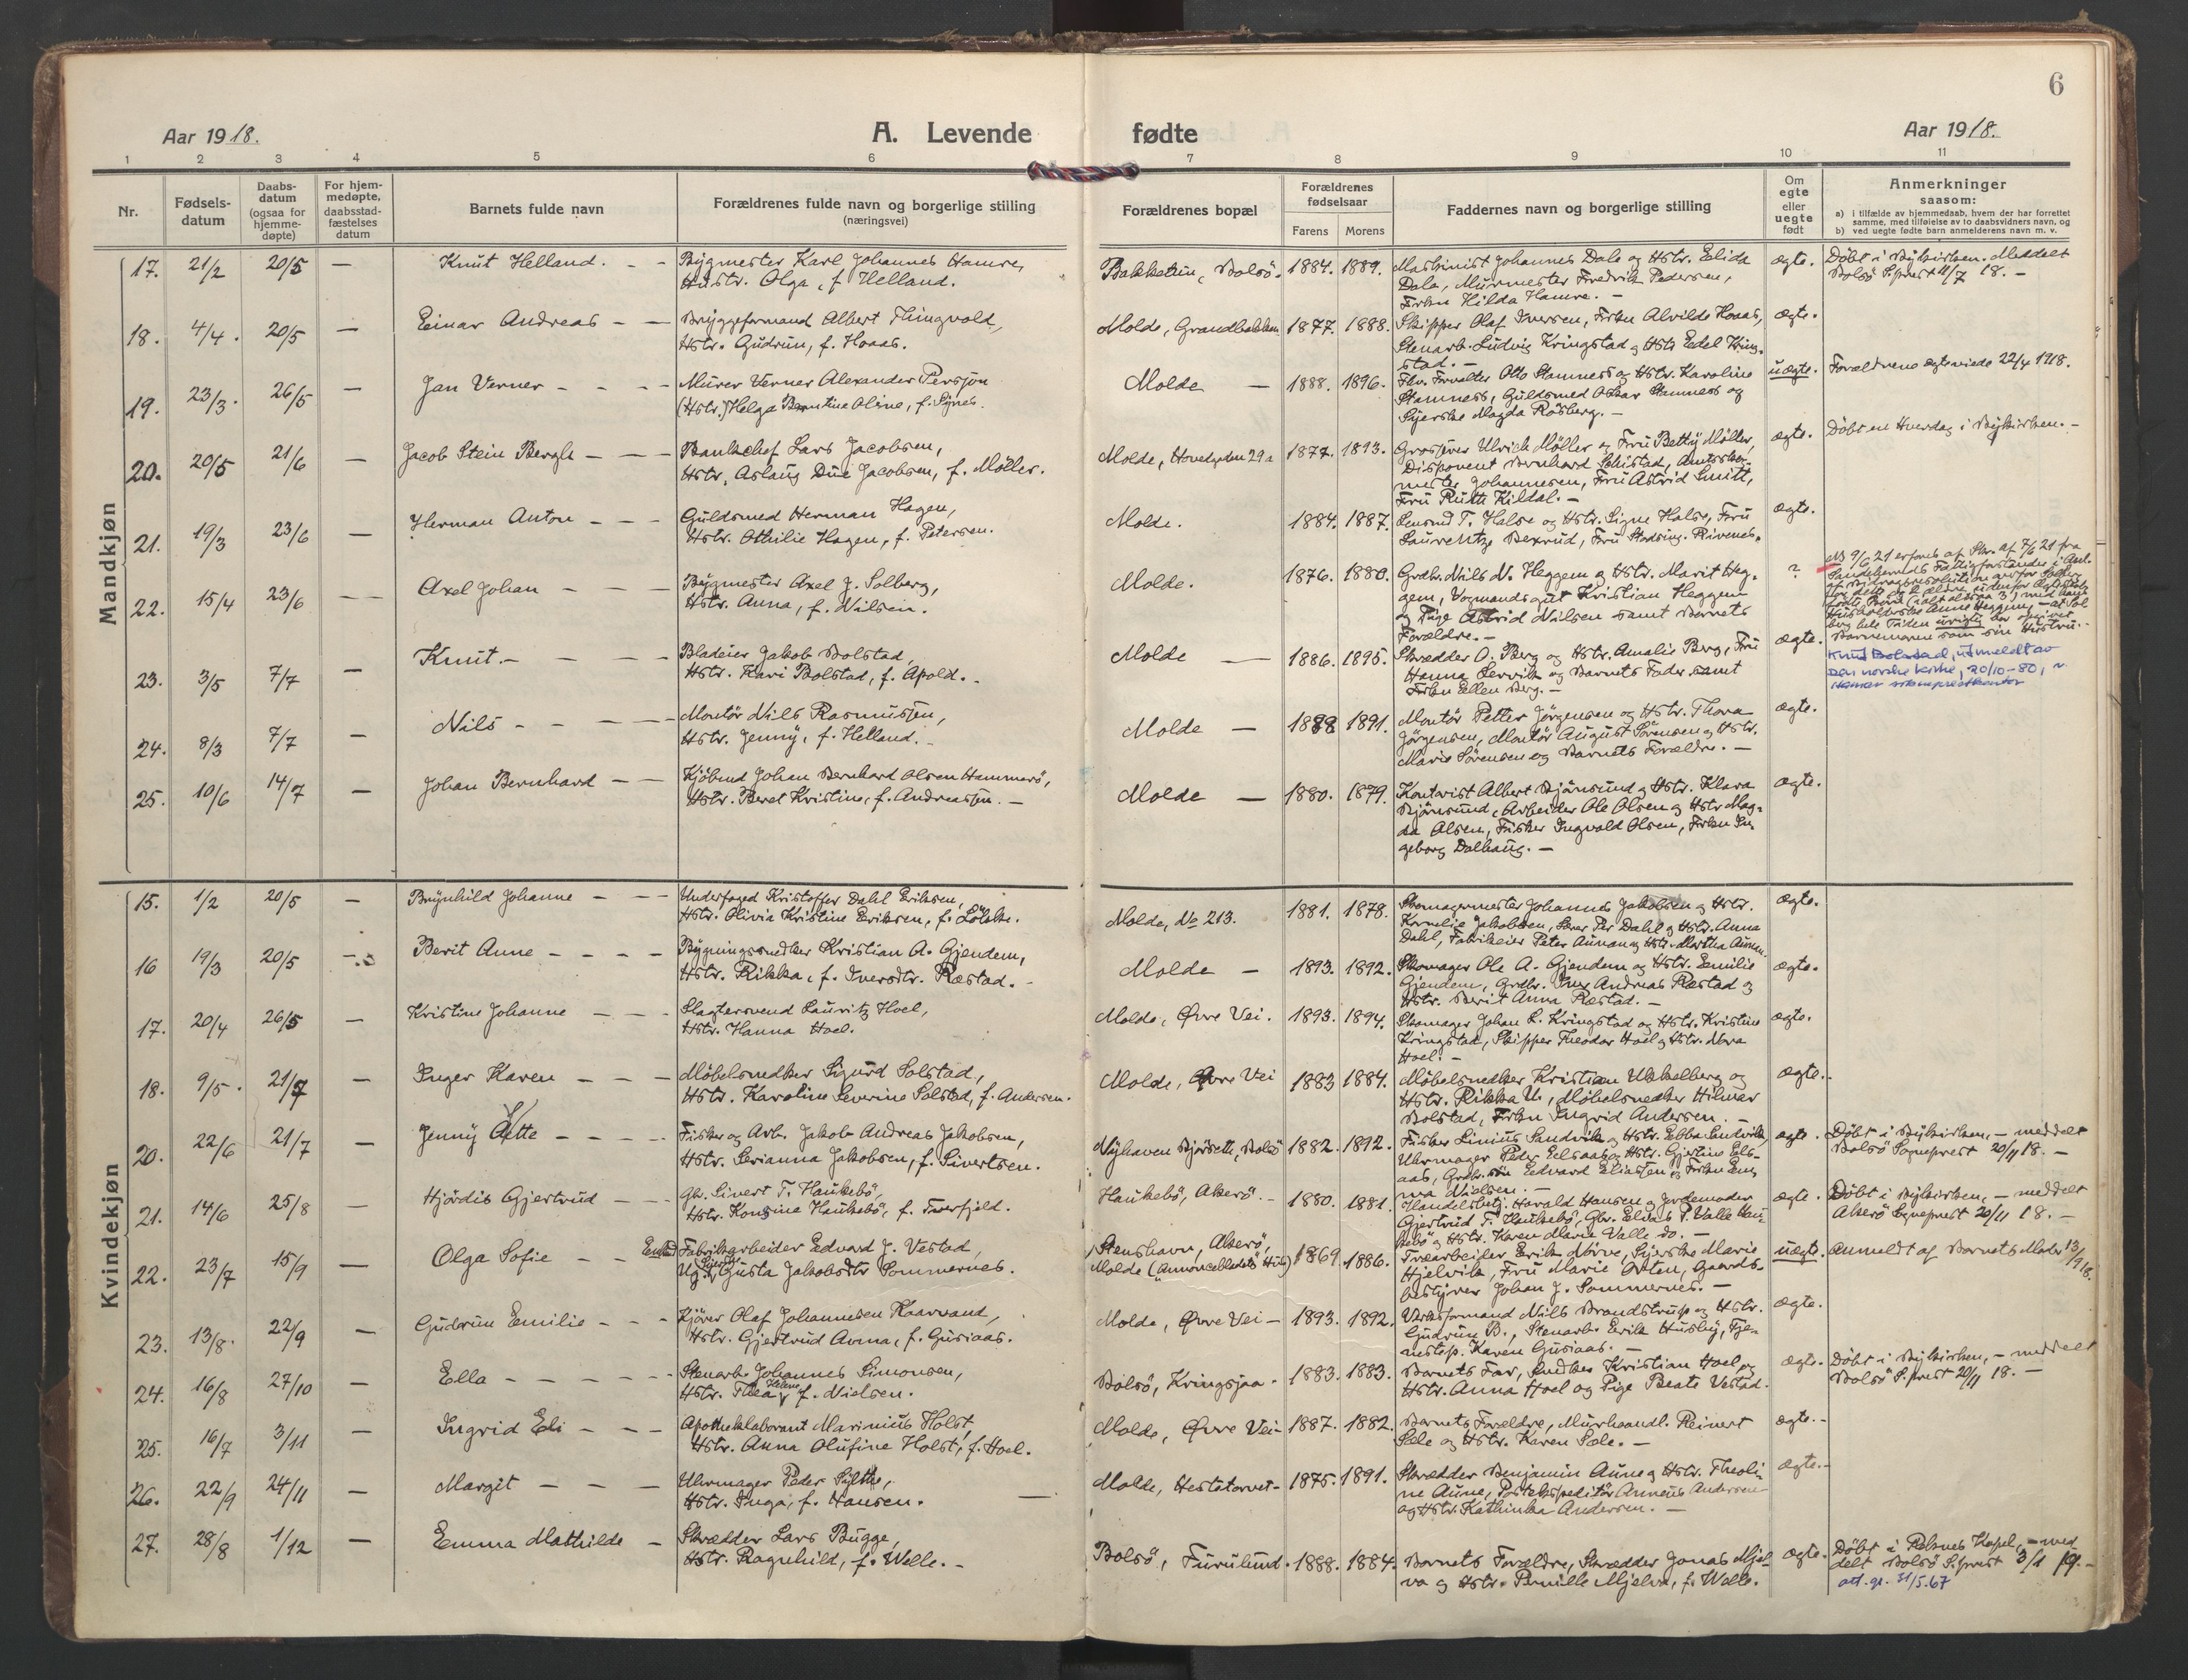 6
Aar 1918.
A. Levende fødte
Aar 1918.
1 2 3 4 5 6 7 8 9 10 11
Nr.
Fødsels-
datum
Daabs-
datum
(ogsaa for
hjemme-
døpte)
For hjem-
medøpte,
daabsstad-
fæstelses
datum
Barnets fulde navn
Forældrenes fulde navn og borgerlige stilling
(næringsvei)
Forældrenes bopæl
Forældrenes
fødselsaar
Farens Morens
Faddernes navn og borgerlige stilling
Om
egte
eller
uegte
født
Anmerkninger
saasom:
a) i tilfælde av hjemmedaab, hvem der har forrettet
samme, med tilføielse av to daabsvidners navn, og
b) ved uegte fødte barn anmelderens navn m. v.
Mandkjøn
17. 21/2 20/5 — Knut Helland. — —
Bygmester Karl Johannes Hamre,
Hustr. Olga, f. Helland.
Bolsö. 1884. 1889.
Maskinist Johannes Dale og Hstr. Elida
Dale, Murmester Fredrik Pedersen,
Frkn Hilda Hamre. —
ægte.
Döbt i Bykirken. Meddelt
Bolsö S.prest 11/7 18. —
18. 4/4. 20/5 — Einar Andreas — —
Bryggeformand Albert Thingvold,
Hstr. Gudrun, f. Hoaas.
Molde, Grandbakken 1877. 1888.
Skipper Olaf Iversen, Frkn Alvilde Hoaas,
Stenarb. Ludvig Kringstad og Hstr Edel Kring-
stad. —
ægte.
19. 23/3. 26/5 — Jan Verner — — — —
Murer Verner Alexander Persson
(Hstr.) Helga Berntine Oline, f. Synes.
Molde — 1888. 1896.
Flv. Forvalter Otto Stamness og Hstr. Karoline
Stamness, Guldsmed Oskar Stamness og
Syerske Magda Rösberg. —
uægte.
Forældrene ægteviede 22/4 1918.
20. 20/5 21/6 — Jacob Stein Bergh — — —
Bankchef Lars Jacobsen,
Hstr. Aslaug Due Jacobsen, f. Möller.
Molde, Hovedgaden 29a 1877. 1893.
Grosserer Ulrich Möller og Fru Betty Möller,
Disponent Bernhard Schistad,
Johannesen, Fru Astrid Smitt,
Fru Ruth Kildal. —
ægte.
Döbt en Hverdag i Bykirken. —
21. 19/3 23/6 — Herman Anton — — —
Guldsmed Herman Hagen,
Hstr. Othilie Hagen, f. Petersen.
Molde. 1884. 1887.
T. Halse og Hstr. Signe Halse, Fru
Bexrud, Fru Rivenes.
ægte.
22. 15/4 23/6 — — Axel Johan — — —
Bygmester Axel J. Solberg,
Hstr. Anna, f. Nilsen.
Molde. 1876. 1880.
Grdbr. Nils N. Heggem og Hstr. Marit Heg-
gem, Vognmandsgut Kristian Heggem
og Pige Astrid Nilsen samt Barnets
Forældre. —
?
NB 9/6 21 erfares af Skr. af 7/6 21 fra
Barnemoren som sin Hustru. —
23. 3/5 7/7 — Knut. — — — —
Bladeier Jakob Bolstad,
Hstr. Kari Bolstad, f. Apold. —
Molde — 1886. 1895.
Skrædder O. Berg og Hstr. Amalie Berg, Fru
Hanna Lervik og Barnets Fader samt
Frkn Ellen Berg. —
ægte.
Knut Bolstad, utmeldt av
Den norske kirke, 20/10-80,
24. 8/3 7/7 — Nils — — — —
Montör Nils Rasmussen,
Hstr. Jenny, f. Helland. —
Molde — 1888 1891.
Montör Petter Jörgensen og Hstr. Thora
Jörgensen, Montör August Sörensen og Hstr.
Marie Sörensen og Barnets Forældre. —
ægte.
25. 10/6 14/7 — Johan Bernhard — —
Kjöbmd Johan Bernhard Olsen Hammerö,
Hstr. Beret Kristine, f. Andreassen. —
Molde — 1880. 1879.
Kontorist Albert Björnsund og Hstr. Klara
Björnsund, Arbeider Ole Olsen og Hstr Mag-
da Olsen, Fisker Ingvald Olsen, Frkn In-
geborg Dalhaug. —
ægte.
Kvindekjøn
15. 1/2 20/5 — Brynhild Johanne — — —
Underfoged Kristoffer Dahl Eriksen,
Hstr. Olivia Kristine Eriksen, f. Lökke.
Molde, No 213. 1881. 1878.
Skomagermester Johannes Jakobsen og Hstr.
Kornelie Jakobsen, Lærer Per Dahl og Hstr. Anna
Dahl, Fabrikeier Peter Aunan og Hstr. Martha Aunan.
ægte.
16 19/3 20/5 — Berit Anne — — — —
Bygningssnedker Kristian A. Gjendem,
Hstr. Rikka, f. Iversdtr. Ræstad. —
Molde — 1893. 1892.
Skomager Ole A. Gjendem og Hstr. Emilie
Gjendem, Grdbr. Iver Andreas Ræstad og
Hstr. Berit Anna Ræstad. —
ægte.
17. 20/4 26/5 — Kristine Johanne — — —
Slagtersvend Lauritz Hoel,
Hstr. Hanna Hoel.
Molde, Øvre Vei. 1893. 1894.
Skomager Johan L. Kringstad og Hstr. Kristine
Kringstad, Skipper Theodor Hoel og Hstr. Nora
Hoel. —
ægte.
18. 9/5. 21/7 — Inger Karen — — —
Möbelsnedker Sigurd Solstad,
Hstr. Karoline Severine Solstad, f. Andersen.
Molde, Øvre Vei 1883 1884.
Möbelsnedker Kristian Ukkelberg og
Hstr. Rikka U., Möbelsnedker Hilmar
Bolstad, Frkn Ingrid Andersen. —
ægte.
20. 22/6 21/7 — Jenny — — — —
Fisker og Arb. Jakob Andreas Jakobsen,
Hstr. Serianna Jakobsen, f. Sivertsen.
Nyhaven Bjørsett, Bolsö 1882. 1892.
Fisker Linius Sandvik og Hstr. Ebba Sandvik,
Uhrmager Peder Elsaas og Hstr. Gjertine Els-
aas, Edvard Eliassen og Frkn Em-
ma Nielsen. —
ægte.
Döbt i Bykirken, — meddelt
Bolsö Sogneprest 20/11 18. —
21. 14/6 25/8 — Hjördis Gjertrud — — —
Gbr. Sivert T. Haukebö,
Hstr. Konsine Haukebö, f. Tverfjeld.
Haukebö, Akerö. — 1880. 1881.
Handelsbetj. Harald Hansen og Jordemoder
Gjertrud T. Haukebö, Gbr. Elias P. Valle Hau-
kebö og Hstr. Karen Marie Valle do. —
ægte.
Döbt i Bykirken, — meddelt
Akerö Sogneprest 20/11 18. —
22. 23/7 15/9 — Olga Sofie — —
Enkem. Fabrikarbeider Edvard J. Vestad,
Ug. Syerske Gusta Jakobsdtr Sommernes.
Stenshavn, Akerö,
Molde ("Annoncebladets" Hus) 1869. 1886.
Træarbeider Erik Nörve, Syerske Marie
Hjelvik, Fru Marie Orten, Gaards-
bestyrer Johan J. Sommernes. —
uægte.
Anmeldt af Barnets Moder 13/9 18.
23. 13/8. 22/9 — Gudrun Emilie — — —
Kjörer Olaf Johannesen Kaarvand,
Hstr. Gjertrud Anna, f. Gusiaas.
Molde, Øvre Vei — 1893. 1892.
Verksformand Nils Brandstrup og Hstr.
Gudrun B., Stenarb. Erik Husby, Tje-
nestep. Karen Gusiaas. —
ægte.
24. 16/8 27/10 — Ella — — — — — —
Stenarb. Johannes Simonsen,
Hstr. Thea Helene f. Nielsen.
Bolsö, Kringsjaa. 1883. 1883.
Barnets Far, Snedker Kristian Hoel og
Hstr. Anna Hoel og Pige Beate Vestad.
ægte.
Döbt i Bykirken, — meddelt
Bolsö S.prest 20/11 18. —
25. 16/7 3/11 — Ingrid Eli — — —
Apotheklaborant Marinius Holst,
Hstr. Anna Olufine Holst, f. Hoel.
Molde, Øvre Vei — 1887. 1882.
Barnets Forældre, Murhaandl. Reinert
Sæle og Hstr. Karen Sæle. —
ægte. —
26. 22/9 24/11 — Margit — — —
Uhrmager Peder Sylthe,
Hstr. Inga, f. Hansen. —
Molde, Hestetorvet — 1875. 1891.
Skrædder Benjamin Aune og Hstr. Theoli-
ne Aune, Postekspeditör Anneus Andersen
og Hstr. Kathinka Andersen. —
ægte. —
27. 28/8 1/12 — Emma Mathilde —
Skrædder Lars Bugge,
Hstr. Ragnhild, f. Welle. —
Bolsö, Furulund. 1888. 1884.
Barnets Forældre, Skrædder Jonas Mjel-
va og Hstr. Pernille Mjelva, f. Welle.
ægte.
Döbt i Reknes Kapel, — med-
delt Bolsö S.prest 3/1 19. —
att. gr. 31/5.67